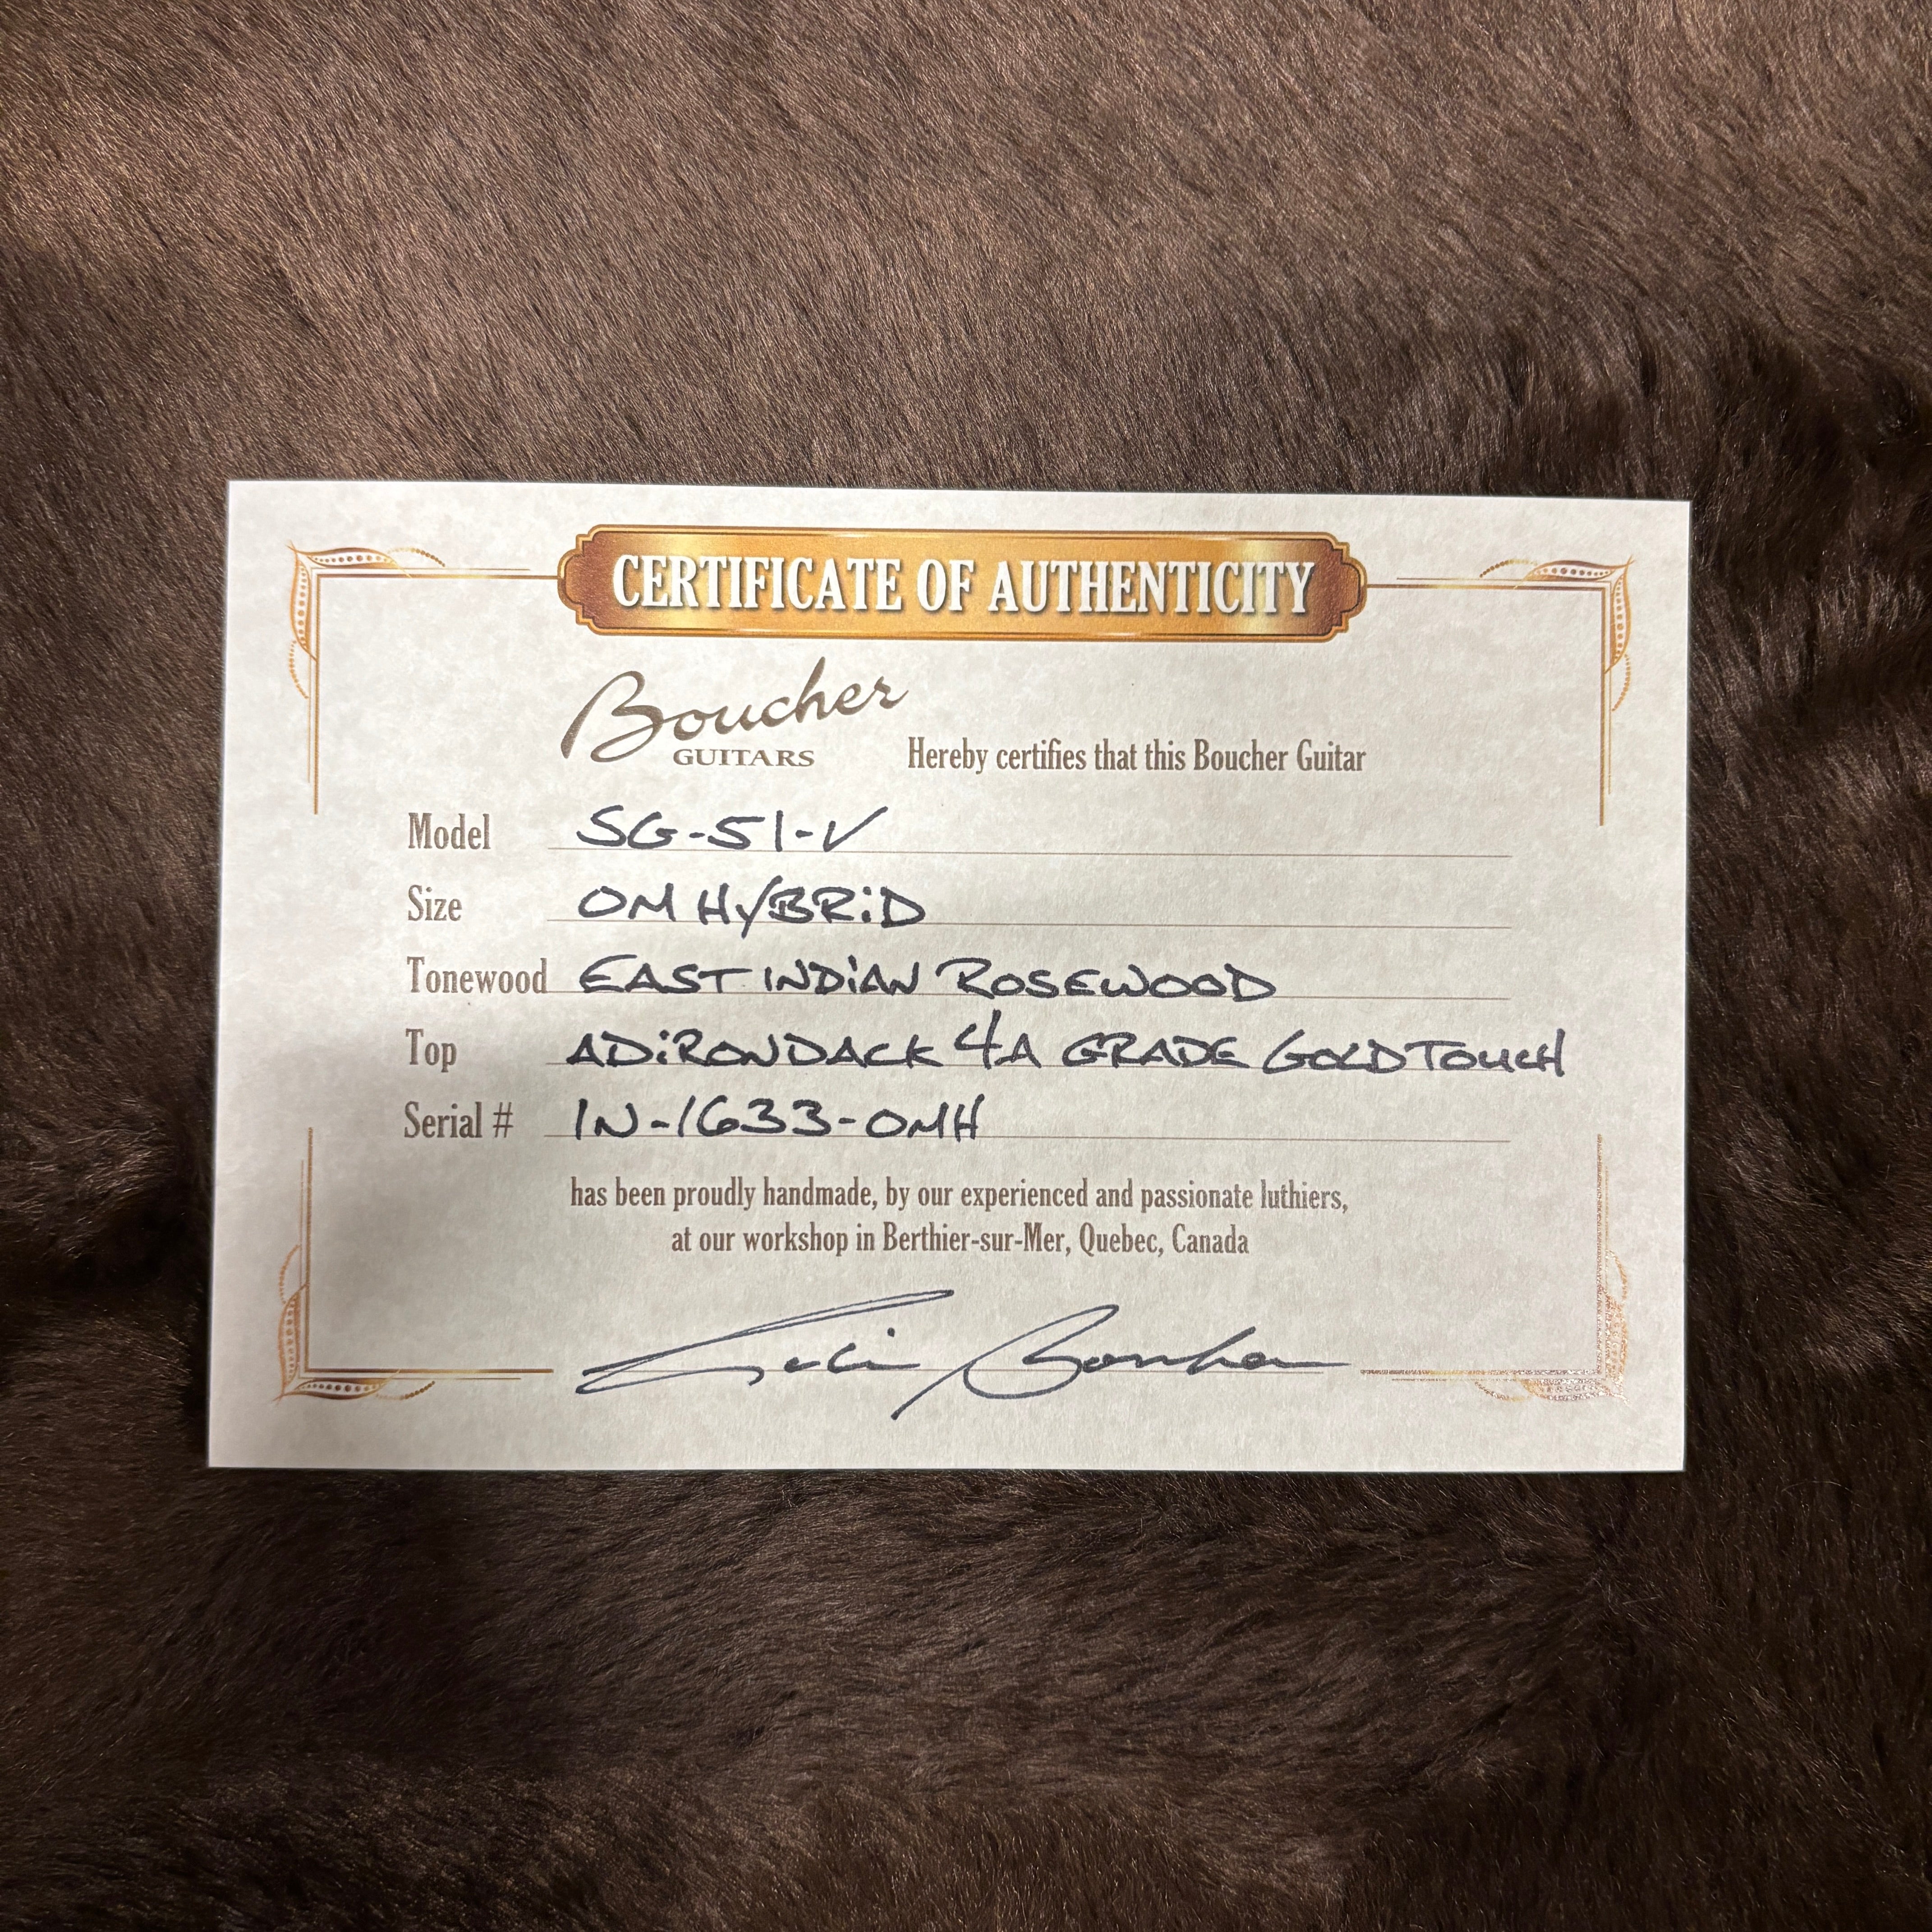 CERTIFICATE OF AUTHENTICITY
Boucher
GUITARS Hereby certifies that this Boucher Guitar
Model SG-51-V
Size OM HYBRiD
Tonewood EAST INDiAN ROSEWOOD
Top ADiRONDACK 4A GRADE GOLDTOUCH
Serial # IN-1633-OMH
has been proudly handmade, by our experienced and passionate luthiers,
at our workshop in Berthier-sur-Mer, Quebec, Canada
Boucher